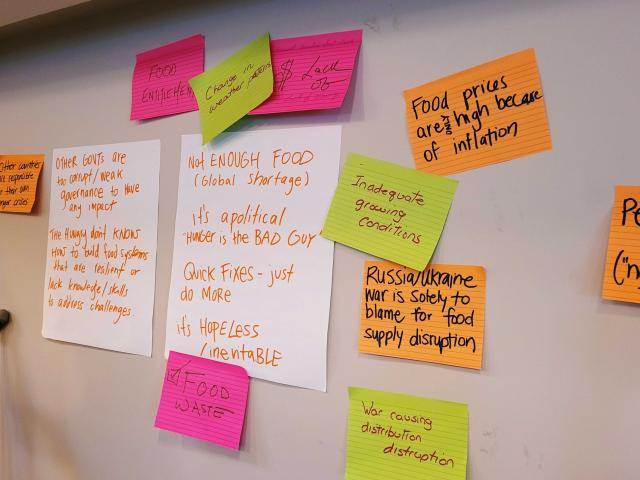 FOOD
ENTITLEMEN
Change in
weather patterns
$ Lack
OF
Food prices
are only high because
of inflation
Other countries
are responsible
for their own
hunger crises
OTHER GOVTS are
too corrupt/weak
governance to have
any impact
THE HUNGRY don't KNOW
HOW to build food systems
that are resilient or
lack knowledge/skills
to address challenges.
Not ENOUGH FOOD
(Global shortage)
it's apolitical
"HUNGER is the BAD GUY"
QUICK FIXES - just
do MORE
it's HOPELESS
/inevitABLE
Inadequate
growing
conditions
Russia/Ukraine
war is solely to
blame for food
supply disruption
Pe
("n
FOOD
WASTE
War causing
distribution
distruption